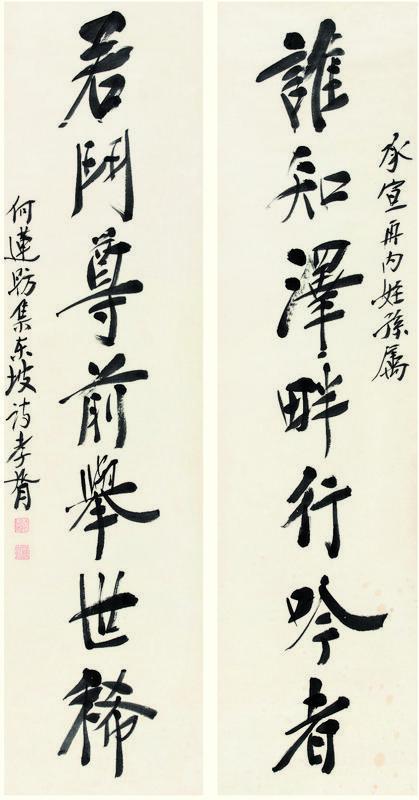 承宣再內姪孫屬
誰知澤畔行吟者
若鬥尊前舉世稀
何蓮舫集東坡詩孝胥